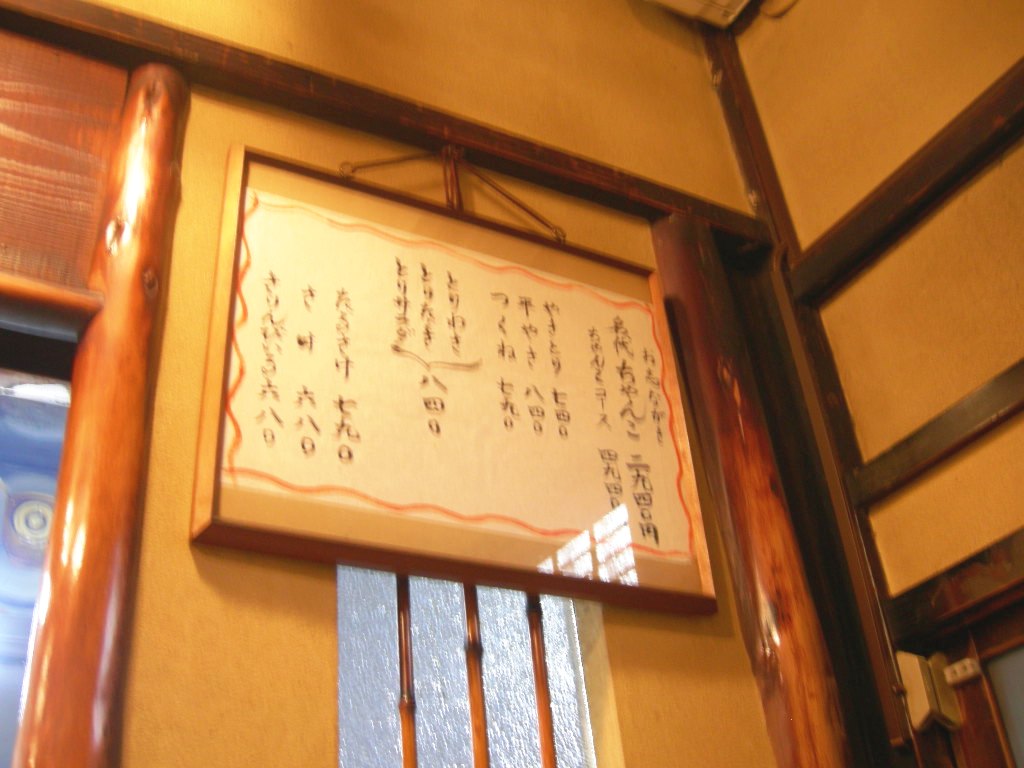 おしながき
ちゃんこ 二九四〇円
ちゃんこコース 四九四〇
やきとり 七四〇
平やき 八四〇
つくね 七九〇
とりわさ
とりたたき
とりサラダ 八四〇
たるざけ 七九〇
さけ 六八〇
六八〇